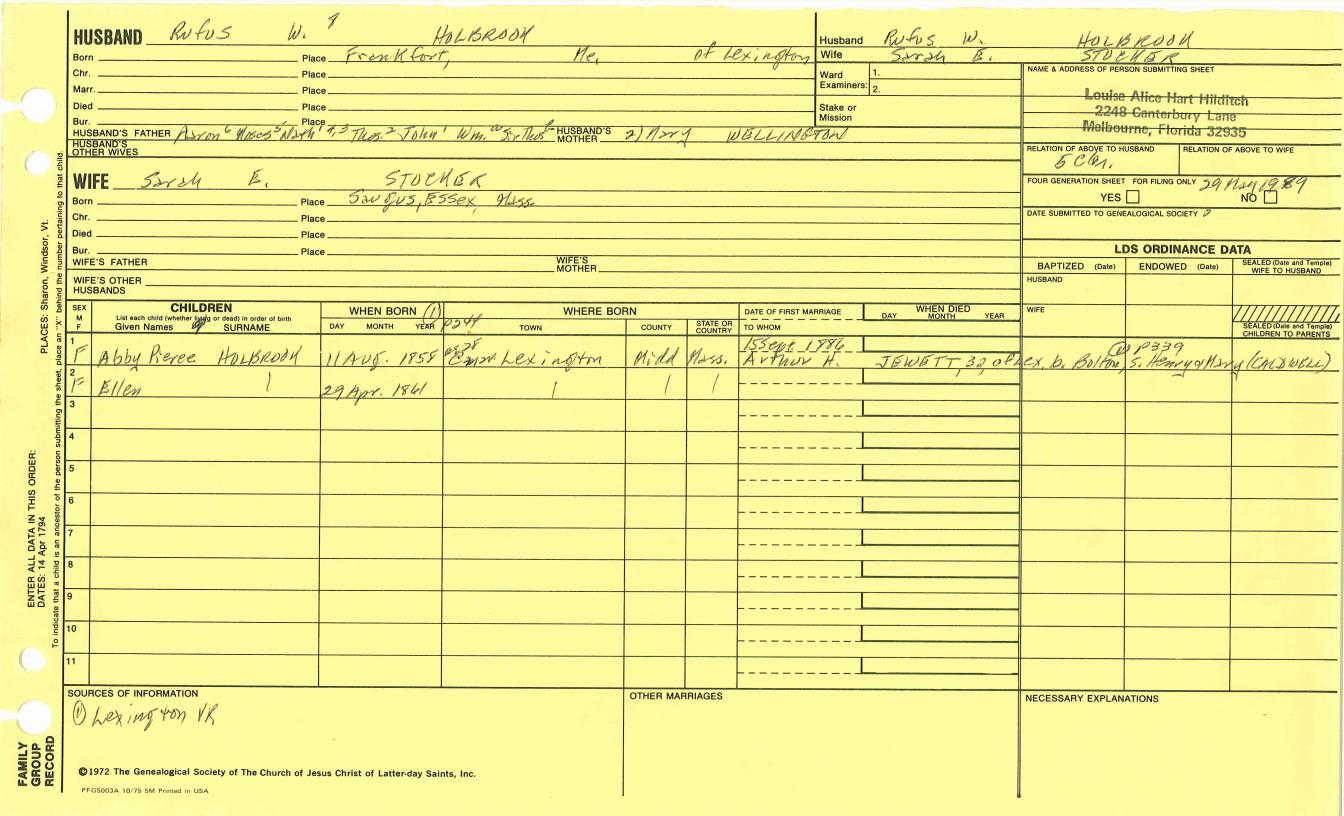 HUSBAND Rufus W. HOLBROOK
Born Place Frankfort, Me, of Lexington
Chr. Place
Marr. Place
Died Place
Bur. Place
HUSBAND'S FATHER Aaron 6 Moses 5 Nath'l 4,3 Thos. 2 John 1 Wm. HUSBAND'S MOTHER 2) Mary WELLINGTON
HUSBAND'S OTHER WIVES
WIFE Sarah E. STOCKER
Born Place Saugus, Essex, Mass
Chr. Place
Died Place
Bur. Place
WIFE'S FATHER WIFE'S MOTHER
WIFE'S OTHER HUSBANDS
Husband Rufus W. HOLBROOK
Wife Sarah E. STOCKER
Ward Examiners: 1.
2.
Stake or Mission
NAME & ADDRESS OF PERSON SUBMITTING SHEET
Louise Alice Hart Hilditch
2248 Canterbury Lane
Melbourne, Florida 32935
RELATION OF ABOVE TO HUSBAND RELATION OF ABOVE TO WIFE
FOUR GENERATION SHEET FOR FILING ONLY 29 May 1989
YES NO
DATE SUBMITTED TO GENEALOGICAL SOCIETY
LDS ORDINANCE DATA
BAPTIZED (Date) ENDOWED (Date) SEALED (Date and Temple) WIFE TO HUSBAND
HUSBAND
WIFE
SEALED (Date and Temple) CHILDREN TO PARENTS
SEX M F
CHILDREN
List each child (whether living or dead) in order of birth
Given Names SURNAME
WHEN BORN (1)
DAY MONTH YEAR p244
WHERE BORN
TOWN COUNTY STATE OR COUNTRY
DATE OF FIRST MARRIAGE
TO WHOM
WHEN DIED
DAY MONTH YEAR
1 15 Sept 1886 (1) P339
F Abby Pierce HOLBROOK 11 Aug. 1858 Lexington Midd Mass. Arthur H. JEWETT, 32, of Lex. b. Bolton, s. Henry & Mary (CALDWELL)
2
F Ellen 29 Apr. 1861
3
4
5
6
7
8
9
10
11
SOURCES OF INFORMATION
(1) Lexington VR
OTHER MARRIAGES
NECESSARY EXPLANATIONS
©1972 The Genealogical Society of The Church of Jesus Christ of Latter-day Saints, Inc.
PFGS003A 10/75 5M Printed in USA
FAMILY GROUP RECORD
ENTER ALL DATA IN THIS ORDER:
DATES: 14 Apr 1794
PLACES: Sharon, Windsor, Vt.
To indicate that a child is an ancestor of the person submitting the sheet, place an "X" behind the number pertaining to that child.